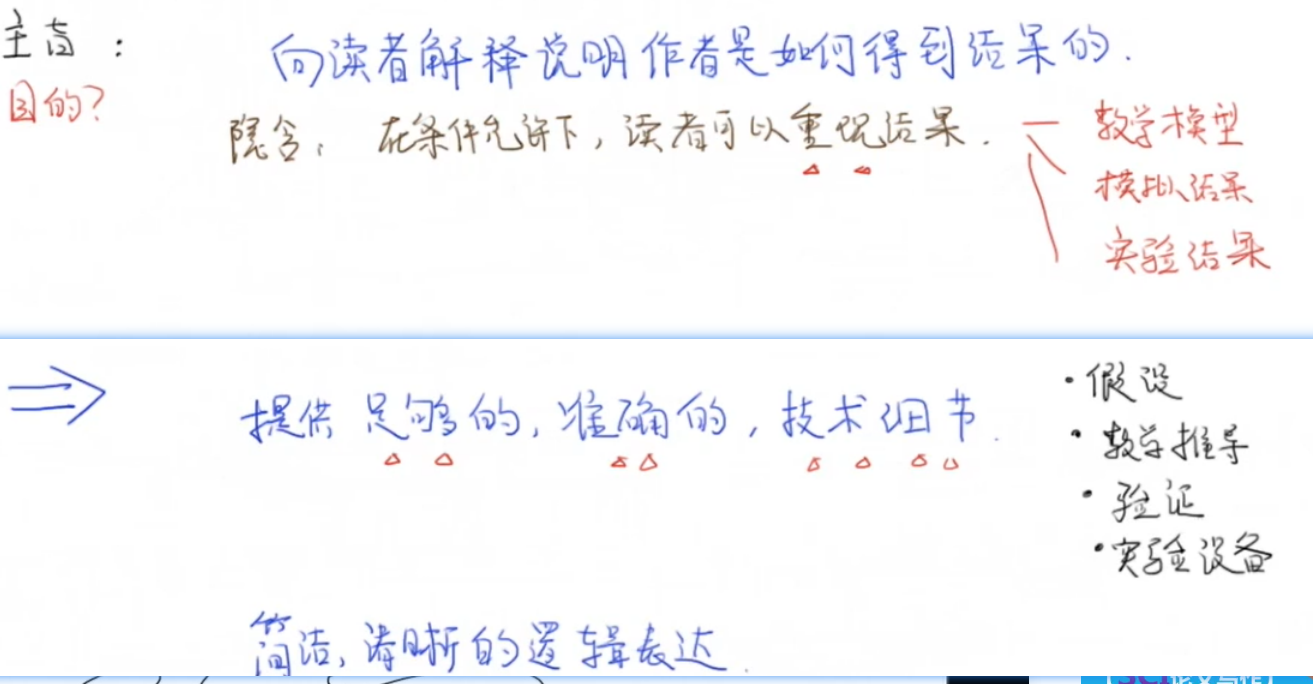 主旨： 向读者解释说明作者是如何得到结果的.
目的？
隐含， 在条件允许下，读者可以重现结果. 数学模型
模拟结果
实验结果
⇒ 提供足够的，准确的，技术细节.
·假设
·数学推导
·验证
·实验设备
简洁，清晰的逻辑表达.